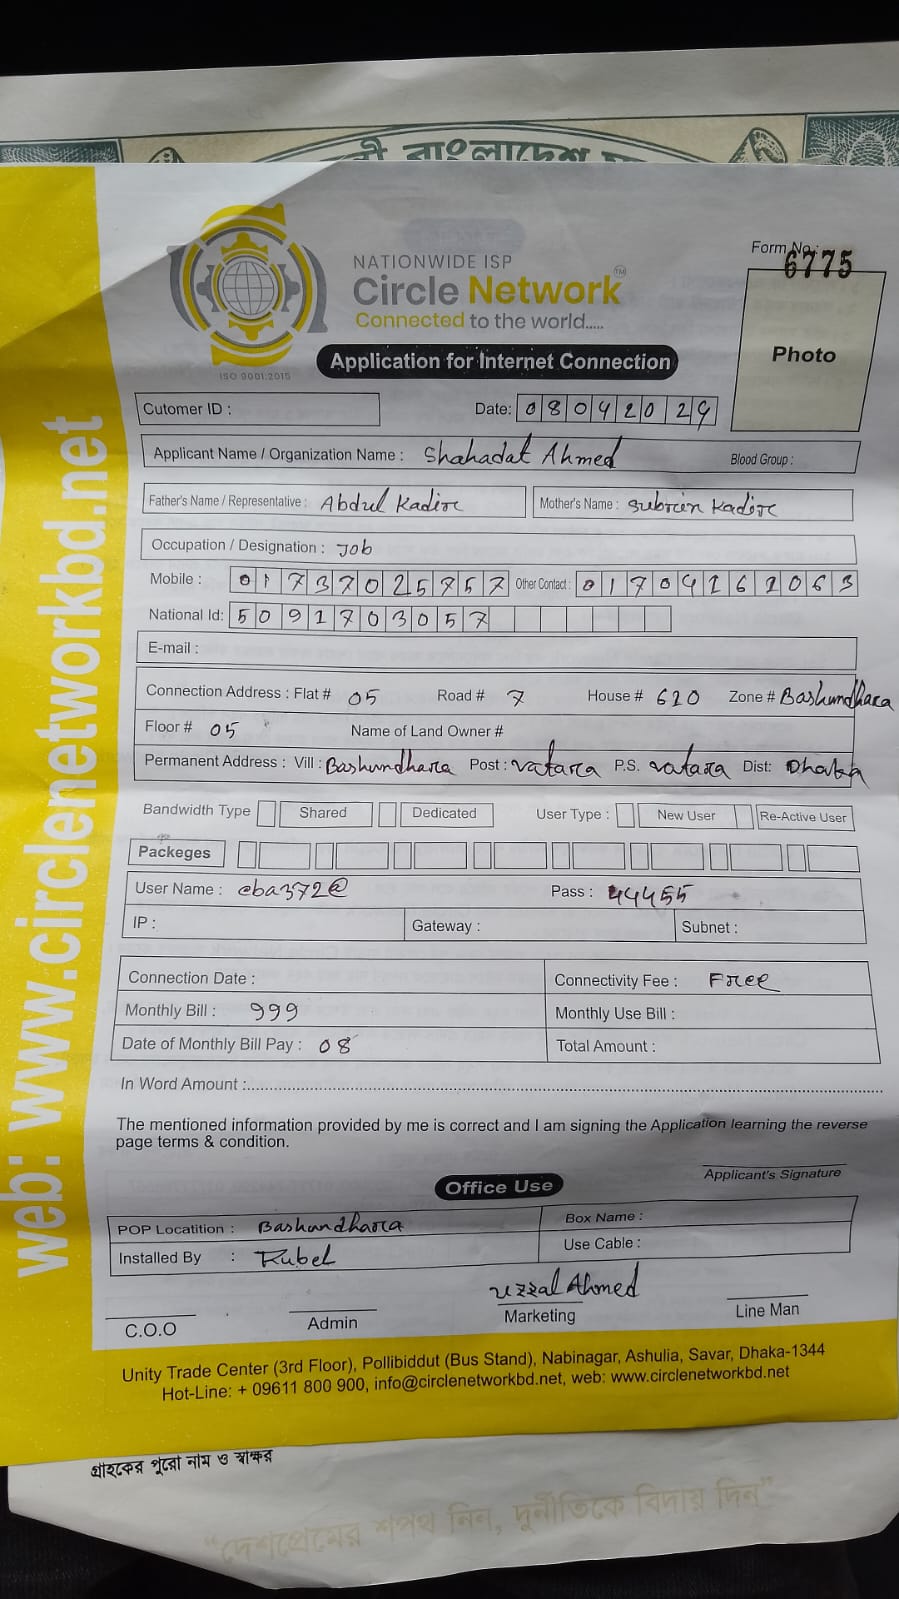 বাংলাদেশ
NATIONWIDE ISP
Circle Network™
Connected to the world.....
ISO 9001:2015
Form No.: 6775
Photo
Application for Internet Connection
Cutomer ID :
Date: 08042024
Applicant Name / Organization Name : Shahadat Ahmed Blood Group :
Father's Name / Representative : Abdul Kadir Mother's Name : Kadir
Occupation / Designation : Job
Mobile : 01737025757 Other Contact : 01704162063
National Id: 5091703057
E-mail :
Connection Address : Flat # 05 Road # 7 House # 620 Zone # Bashundhara
Floor # 05 Name of Land Owner #
Permanent Address : Vill : Bashundhara Post : vatara P.S. vatara Dist: Dhaka
Bandwidth Type Shared Dedicated User Type : New User Re-Active User
Packeges
User Name : cba372@ Pass : 44455
IP : Gateway : Subnet :
Connection Date : Connectivity Fee : Free
Monthly Bill : 999 Monthly Use Bill :
Date of Monthly Bill Pay : 08 Total Amount :
In Word Amount :
The mentioned information provided by me is correct and I am signing the Application learning the reverse
page terms & condition.
Applicant's Signature
Office Use
POP Locatition : Bashundhara Box Name :
Installed By : Rubel Use Cable :
uzzal Ahmed
C.O.O Admin Marketing Line Man
Unity Trade Center (3rd Floor), Pollibiddut (Bus Stand), Nabinagar, Ashulia, Savar, Dhaka-1344
Hot-Line: + 09611 800 900, info@circlenetworkbd.net, web: www.circlenetworkbd.net
web: www.circlenetworkbd.net
গ্রাহকের পুরো নাম ও স্বাক্ষর
“দেশপ্রেমের শপথ নিন, দুর্নীতিকে বিদায় দিন”